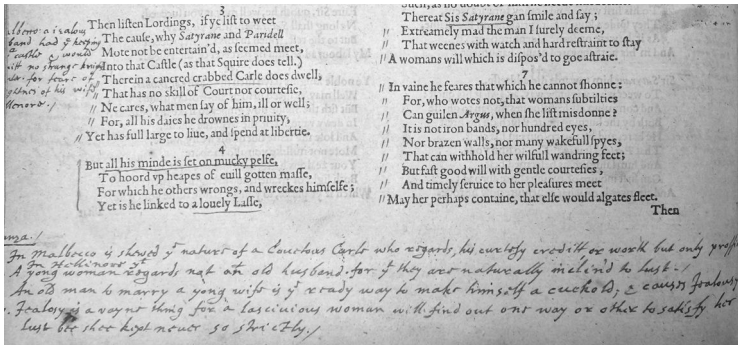 3
Then listen Lordings, if ye list to weet
The cause, why Satyrane and Paridell
Mote not be entertain'd, as seemed meet,
Into that Castle (as that Squire does tell.)
Therein a cancred crabbed Carle does dwell,
That has no skill of Court nor courtesie,
Ne cares, what men say of him, ill or well;
For, all his daies he drownes in priuity,
Yet has full large to liue, and spend at libertie.
4
But all his minde is set on mucky pelfe,
To hoord vp heapes of euill gotten masse,
For which he others wrongs, and wreckes himselfe;
Yet is he linked to a louely Lasse,
Thereat Sir Satyrane gan smile and say;
Extreamely mad the man I surely deeme,
That weenes with watch and hard restraint to stay
A womans will which is dispos'd to goe astraie.
7
In vaine he feares that which he cannot shonne:
For, who wotes not, that womans subtilties
Can guilen Argus, when she list misdonne?
It is not iron bands, nor hundred eyes,
Nor brazen walls, nor many wakefull spyes,
That can withhold her wilfull wandring feet;
But fast good will with gentle courtesies,
And timely seruice to her pleasures meet
May her perhaps containe, that else would algates fleet.
Then
a iealous
band had yᵉ keeping
castle & would
no strange knight
for feare of
of his wife
In Malbecco is shewed yᵉ nature of a Couetous Carle who regards, his curtesy creditt or worth but only
In Hellinore yᵗ
A yong woman regards not an old husband. for yᵗ they are naturally inclin'd to lust./
An old man to marry a yong wife is yᵉ ready way to make himself a cuckold, & causes Jealousy
Jealosy is a vayne thing for a lasciuious woman will find out one way or other to satisfy her
lust bee shee kept never so strictly./